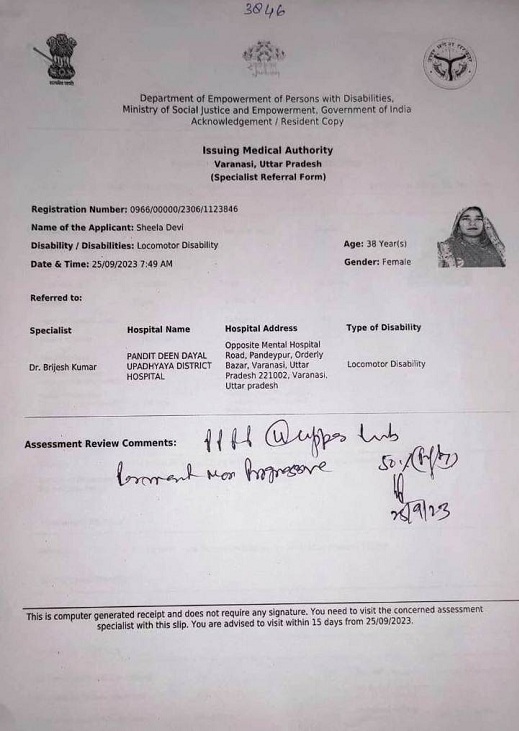 3846
Department of Empowerment of Persons with Disabilities,
Ministry of Social Justice and Empowerment, Government of India
Acknowledgement / Resident Copy
Issuing Medical Authority
Varanasi, Uttar Pradesh
(Specialist Referral Form)
Registration Number: 0966/00000/2306/1123846
Name of the Applicant: Sheela Devi
Disability / Disabilities: Locomotor Disability
Age: 38 Year(s)
Date & Time: 25/09/2023 7:49 AM
Gender: Female
Referred to:
Specialist Hospital Name Hospital Address Type of Disability
Dr. Brijesh Kumar
PANDIT DEEN DAYAL
UPADHYAYA DISTRICT
HOSPITAL
Opposite Mental Hospital
Road, Pandeypur, Orderly
Bazar, Varanasi, Uttar
Pradesh 221002, Varanasi,
Uttar pradesh
Locomotor Disability
Assessment Review Comments: upper limb
Non Progressive 50%
This is computer generated receipt and does not require any signature. You need to visit the concerned assessment
specialist with this slip. You are advised to visit within 15 days from 25/09/2023.